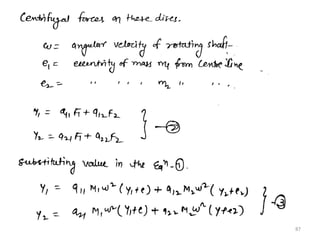 Centrifugal forces on these discs.
ω = angular velocity of rotating shaft
e₁ = eccentricity of mass m₁ from centre line
e₂ = " " " m₂ " " "
y₁ = a₁₁ F₁ + a₁₂ F₂
y₂ = a₂₁ F₁ + a₂₂ F₂ —②
Substituting value in the Eqⁿ-①.
y₁ = a₁₁ M₁ω² (y₁+e) + a₁₂ M₂ω² (y₂+e₂)
y₂ = a₂₁ M₁ω² (y₁+e) + a₂₂ M₂ω² (y+e2) —③
87